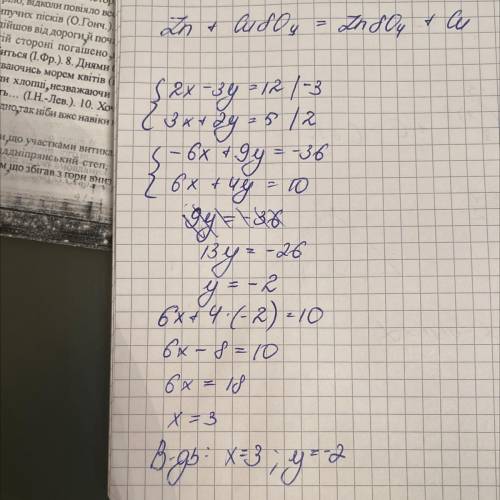 сторо
відколи повіяло вс
пучих пісків (О.Гонч.)
дійшов від дороги, й поч
ій стороні погашено
ться (І.Фр.). 8. Днями
ваючись морем квітів (
и хлопці, незважаючи
ть... (І.Н.-Лев.). 10. Хо
дно, так ніби вже навіки
и, що участками витика
аддніпрянський степ,
м, що збігав з гори вниз
Zn + CuSO₄ = ZnSO₄ + Cu
2x - 3y = 12 / -3
3x + 2y = 5 / 2
-6x + 9y = -36
6x + 4y = 10
9y = -36
13y = -26
y = -2
6x + 4 · (-2) = 10
6x - 8 = 10
6x = 18
x = 3
В-дь: x = 3 ; y = -2